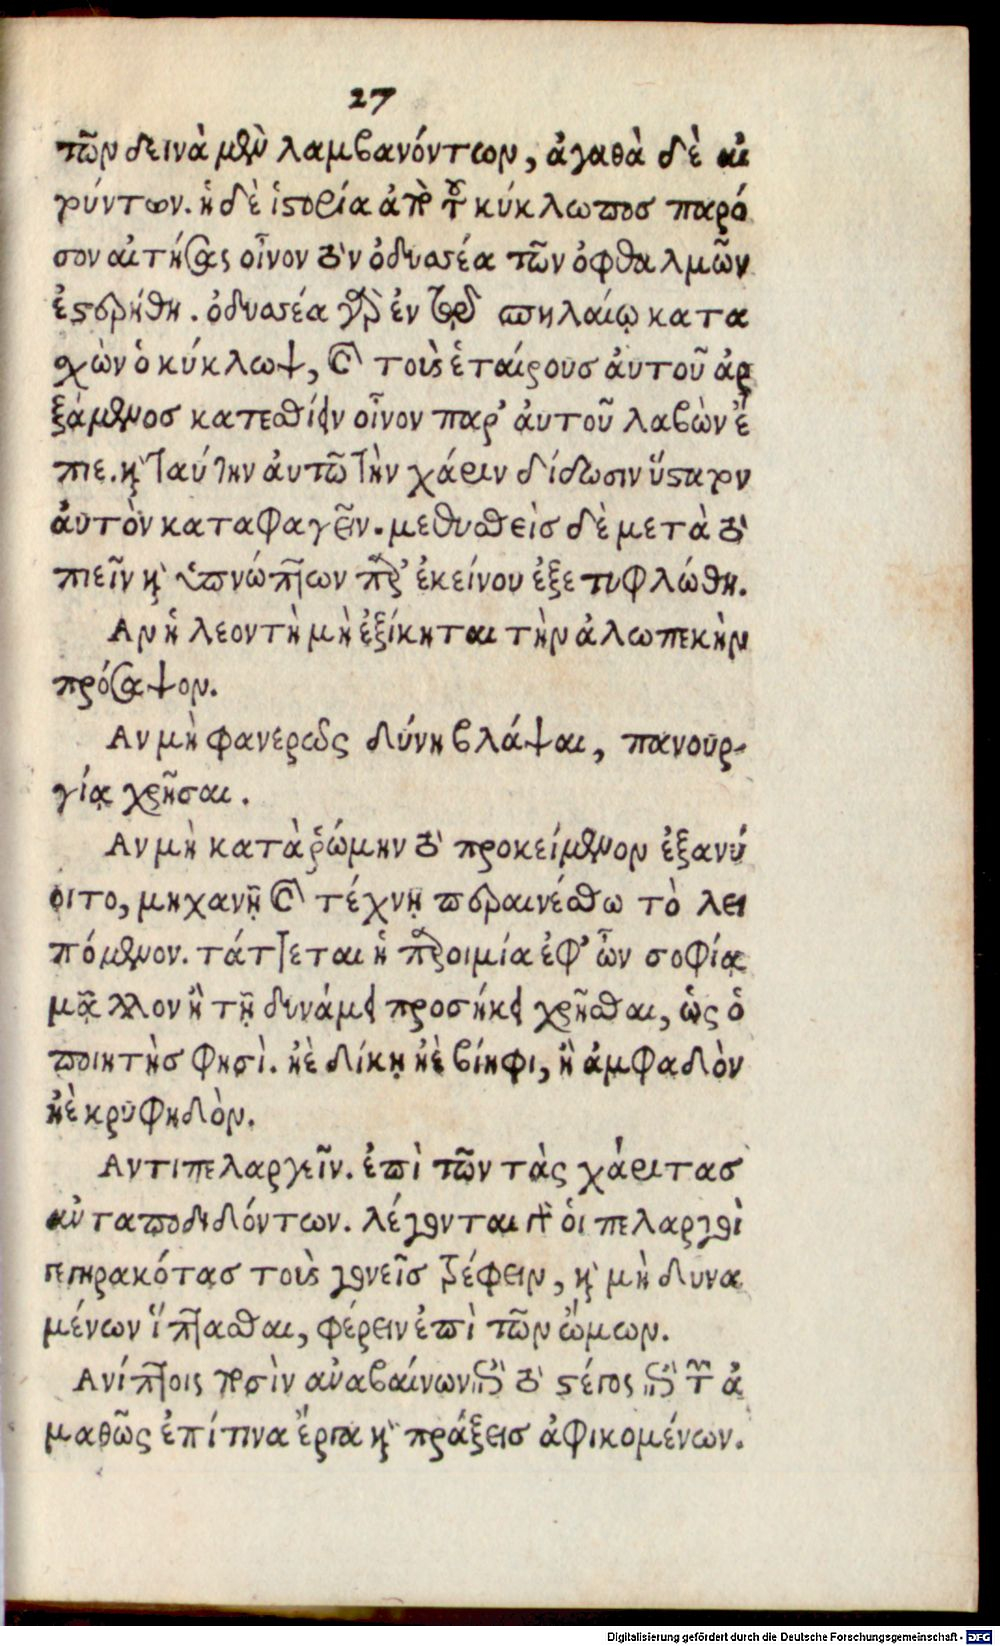 27
τῶν δεινὰ μὲν λαμβανόντων, ἀγαθὰ δὲ αἱ
ρύντων. ἡ δὲ ἱστορία ἀπὸ τοῦ κύκλωπος παρό
σον αἰτήσας οἶνον τὸν ὀδυσσέα τῶν ὀφθαλμῶν
ἐστερήθη. ὀδυσσέα γὰρ ἐν τῷ σπηλαίῳ κατα
χὼν ὁ κύκλωψ, καὶ τοὺς ἑταίρους αὐτοῦ ἀρ
ξάμενος κατεσθίειν οἶνον παρ' αὐτοῦ λαβὼν ἔ
πιε. καὶ ταύτην αὐτῶ τὴν χάριν δίδωσιν ὕστατον
αὐτὸν καταφαγεῖν. μεθυσθεὶς δὲ μετὰ τὸ
πιεῖν καὶ ὑπνώττων παρ' ἐκείνου ἐξετυφλώθη.
Αν ἡ λεοντὴ μὴ ἐξίκηται τὴν ἀλωπεκὴν
πρόσαψον.
Αν μὴ φανερῶς δύνη βλάψαι, πανουρ-
γίᾳ χρῆσαι.
Αν μὴ κατὰ ῥώμην τὸ προκείμενον ἐξανύ
οιτο, μηχανῇ καὶ τέχνῃ περαινέσθω τὸ λει
πόμενον. τάττεται ἡ παροιμία ἐφ' ὧν σοφίᾳ
μᾶλλον ἢ τῇ δυνάμει προσήκει χρῆσθαι, ὡς ὁ
ποιητὴς φησὶ. ἠὲ δίκῃ ἠὲ βίηφι, ἢ ἀμφαδὸν
ἠὲ κρυφηδὸν.
Αντιπελαργεῖν. ἐπὶ τῶν τὰς χάριτας
ἀνταποδιδόντων. λέγονται γὰρ οἱ πελαργοὶ
γεγηρακότας τοὺς γονεῖς τρέφειν, καὶ μὴ δυνα
μένων ἵπτασθαι, φέρειν ἐπὶ τῶν ὤμων.
Ανίπτοις ποσὶν ἀναβαίνων ἐπὶ τὸ στέγος ἐπὶ τῶν ἀ
μαθῶς ἐπί τινα ἔργα καὶ πράξεις ἀφικομένων.
Digitalisierung gefördert durch die Deutsche Forschungsgemeinschaft - DFG